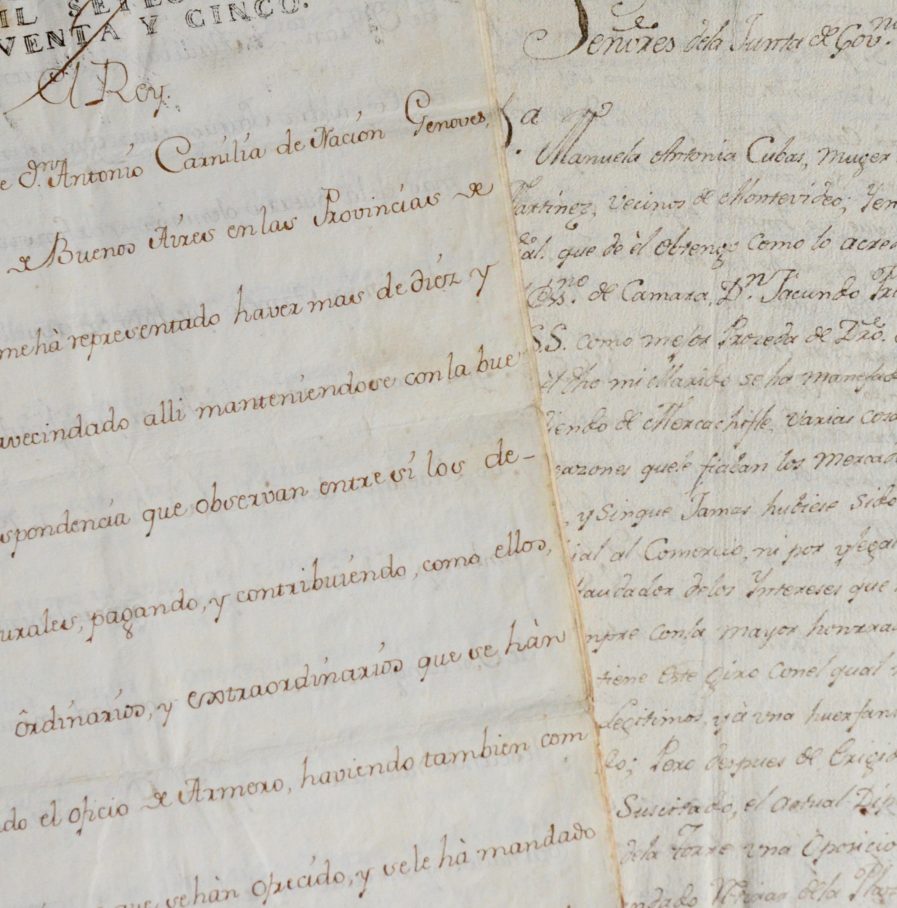 MIL SETE
VENTA Y CINCO.
El Rey.
e Dn. Antonio Carnilia de Nación Genoves,
de Buenos Aires en las Provincias de
me hà representado haver mas de diéz y
avecindado alli manteniendose con la bue
spondencia que observan entre sí los de-
urales, pagando, y contribuiendo, como ellos,
ôrdinarios, y extraordinarios que se hàn
do el oficio de Armero, haviendo tambien com
que se hàn ofrecido, y se le hà mandado
Señores de la Junta de Govno.
Manuela Antonia Cubas, muger
Martinez, vecinos de Montevideo; Yen
al. que de èl obtengo como lo acred
Essno. de Camara, Dn. Facundo
S.S. como mejor Proceda de Dro.
dho mi Marido se ha manejad
iendo de Mercachifle, varias cosa
razones que le fiaban los Mercad
, y Sin que Jamas hubiese sido
ial al Comercio, ni por ylegal
audador de los Yntereses que
mpre con la mayor honrra
tiene Este Giro con el qual
Legitimos, y à una huerfan
do; Pero despues de Erigido
Suscitado, el actual Dip
de la Torre una Oposicio
ndado retirar de la Plaz